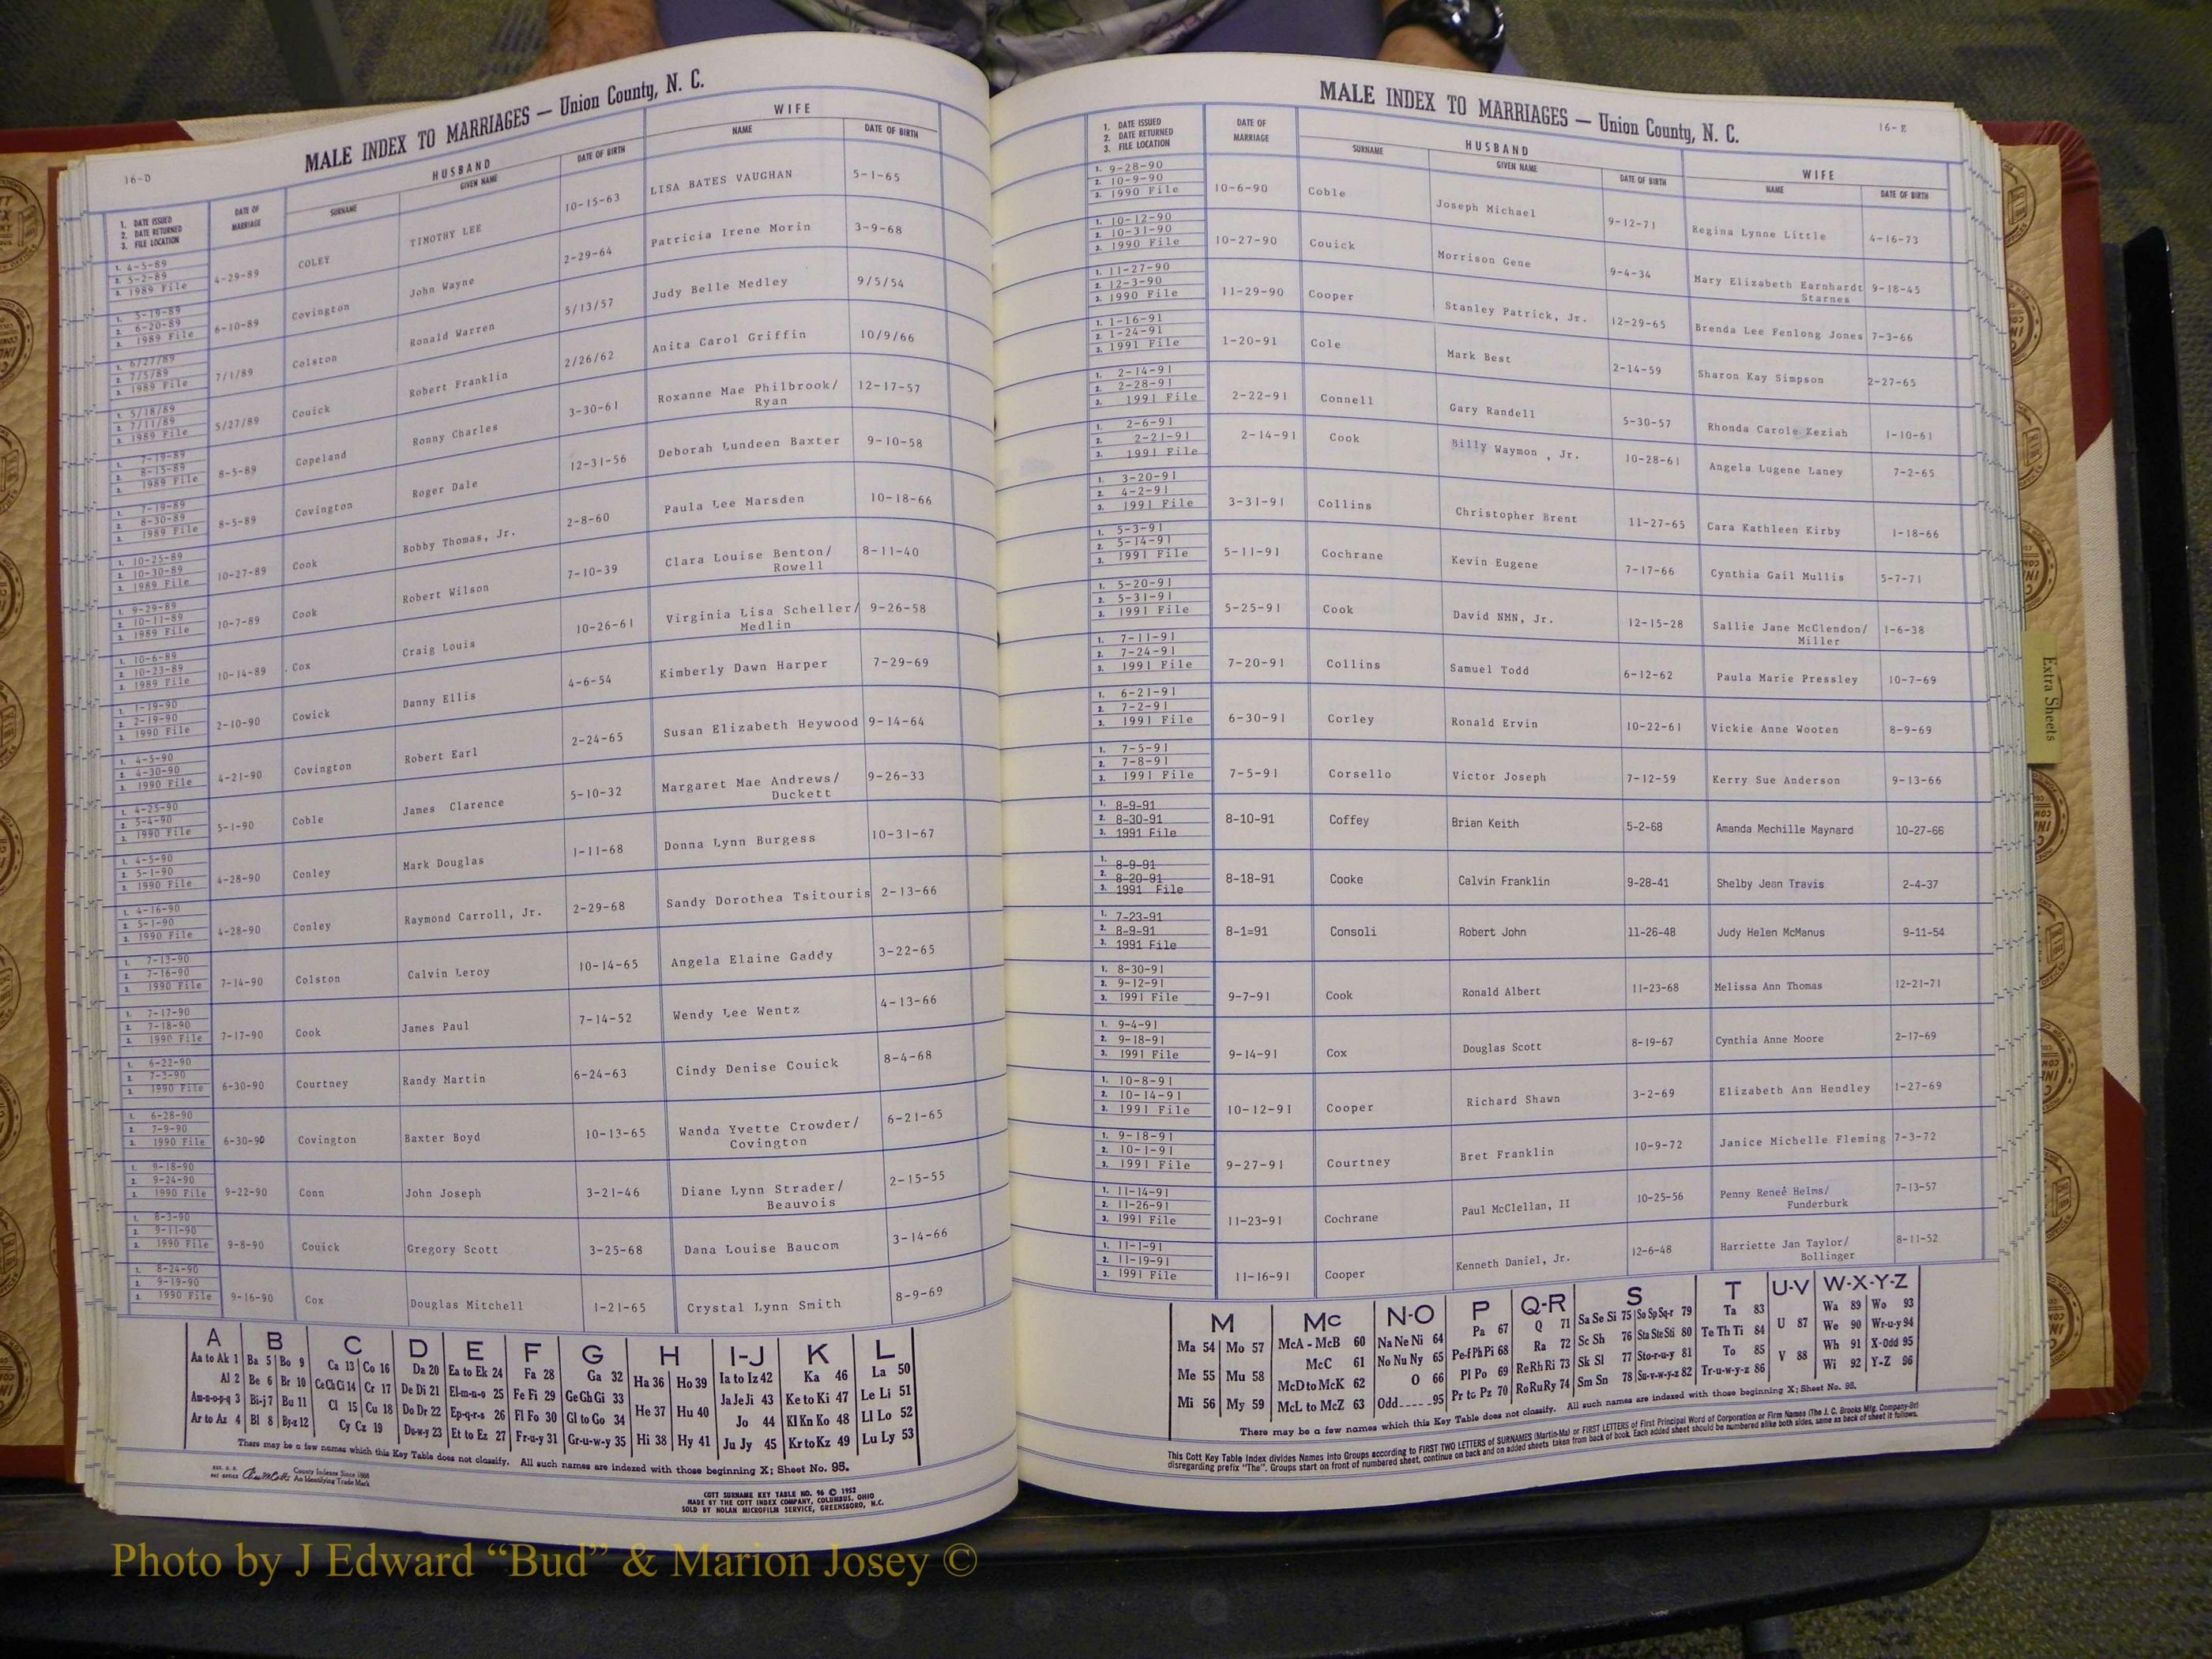 16-D
MALE INDEX TO MARRIAGES — Union County, N. C.
1. DATE ISSUED 2. DATE RETURNED 3. FILE LOCATION | DATE OF MARRIAGE | HUSBAND SURNAME | GIVEN NAME | DATE OF BIRTH | WIFE NAME | DATE OF BIRTH
1. 4-5-89 2. 5-2-89 3. 1989 File 4-29-89 COLEY TIMOTHY LEE 10-15-63 LISA BATES VAUGHAN 5-1-65
1. 5-19-89 2. 6-20-89 3. 1989 File 6-10-89 Covington John Wayne 2-29-64 Patricia Irene Morin 3-9-68
1. 6/27/89 2. 7/5/89 3. 1989 File 7/1/89 Colston Ronald Warren 5/13/57 Judy Belle Medley 9/5/54
1. 5/18/89 2. 7/11/89 3. 1989 File 5/27/89 Couick Robert Franklin 2/26/62 Anita Carol Griffin 10/9/66
1. 7-19-89 2. 8-15-89 3. 1989 File 8-5-89 Copeland Ronny Charles 3-30-61 Roxanne Mae Philbrook/ Ryan 12-17-57
1. 7-19-89 2. 8-30-89 3. 1989 File 8-5-89 Covington Roger Dale 12-31-56 Deborah Lundeen Baxter 9-10-58
1. 10-25-89 2. 10-30-89 3. 1989 File 10-27-89 Cook Bobby Thomas, Jr. 2-8-60 Paula Lee Marsden 10-18-66
1. 9-29-89 2. 10-11-89 3. 1989 File 10-7-89 Cook Robert Wilson 7-10-39 Clara Louise Benton/ Rowell 8-11-40
1. 10-6-89 2. 10-23-89 3. 1989 File 10-14-89 Cox Craig Louis 10-26-61 Virginia Lisa Scheller/ Medlin 9-26-58
1. 1-19-90 2. 2-19-90 3. 1990 File 2-10-90 Cowick Danny Ellis 4-6-54 Kimberly Dawn Harper 7-29-69
1. 4-5-90 2. 4-30-90 3. 1990 File 4-21-90 Covington Robert Earl 2-24-65 Susan Elizabeth Heywood 9-14-64
1. 4-25-90 2. 5-4-90 3. 1990 File 5-1-90 Coble James Clarence 5-10-32 Margaret Mae Andrews/ Duckett 9-26-33
1. 4-5-90 2. 5-1-90 3. 1990 File 4-28-90 Conley Mark Douglas 1-11-68 Donna Lynn Burgess 10-31-67
1. 4-16-90 2. 5-1-90 3. 1990 File 4-28-90 Conley Raymond Carroll, Jr. 2-29-68 Sandy Dorothea Tsitouris 2-13-66
1. 7-13-90 2. 7-16-90 3. 1990 File 7-14-90 Colston Calvin Leroy 10-14-65 Angela Elaine Gaddy 3-22-65
1. 7-17-90 2. 7-18-90 3. 1990 File 7-17-90 Cook James Paul 7-14-52 Wendy Lee Wentz 4-13-66
1. 6-22-90 2. 7-3-90 3. 1990 File 6-30-90 Courtney Randy Martin 6-24-63 Cindy Denise Couick 8-4-68
1. 6-28-90 2. 7-9-90 3. 1990 File 6-30-90 Covington Baxter Boyd 10-13-65 Wanda Yvette Crowder/ Covington 6-21-65
1. 9-18-90 2. 9-24-90 3. 1990 File 9-22-90 Conn John Joseph 3-21-46 Diane Lynn Strader/ Beauvois 2-15-55
1. 8-3-90 2. 9-11-90 3. 1990 File 9-8-90 Couick Gregory Scott 3-25-68 Dana Louise Baucom 3-14-66
1. 8-24-90 2. 9-19-90 3. 1990 File 9-16-90 Cox Douglas Mitchell 1-21-65 Crystal Lynn Smith 8-9-69
A B C D E F G H I-J K L
Aa to Ak 1 Ba 5 Bo 9 Ca 13 Co 16 Da 20 Ea to Ek 24 Fa 28 Ga 32 Ha 36 Ho 39 Ia to Iz 42 Ka 46 La 50
Al 2 Be 6 Br 10 Ce Ch Ci 14 Cr 17 De Di 21 El-m-n-o 25 Fe Fi 29 Ge Gh Gi 33 He 37 Hu 40 Ja Je Ji 43 Ke to Ki 47 Le Li 51
Am-n-o-p-q 3 Bi-j 7 Bu 11 Cl 15 Cu 18 Do Dr 22 Ep-q-r-s 26 Fl Fo 30 Gl to Go 34 Hi 38 Hy 41 Jo 44 Kl Kn Ko 48 Ll Lo 52
Ar to Az 4 Bl 8 By-z 12 Cy Cz 19 Du-w-y 23 Et to Ez 27 Fr-u-y 31 Gr-u-w-y 35 Ju Jy 45 Kr to Kz 49 Lu Ly 53
There may be a few names which this Key Table does not classify. All such names are indexed with those beginning X; Sheet No. 95.
County Indexes Since 1888
An Identifying Trade Mark
COTT SURNAME KEY TABLE NO. 96 © 1952
MADE BY THE COTT INDEX COMPANY, COLUMBUS, OHIO
SOLD BY NOLAN MICROFILM SERVICE, GREENSBORO, N.C.
16-E
MALE INDEX TO MARRIAGES — Union County, N. C.
1. DATE ISSUED 2. DATE RETURNED 3. FILE LOCATION | DATE OF MARRIAGE | HUSBAND SURNAME | GIVEN NAME | DATE OF BIRTH | WIFE NAME | DATE OF BIRTH
1. 9-28-90 2. 10-9-90 3. 1990 File 10-6-90 Coble Joseph Michael 9-12-71 Regina Lynne Little 4-16-73
1. 10-12-90 2. 10-31-90 3. 1990 File 10-27-90 Couick Morrison Gene 9-4-34 Mary Elizabeth Earnhardt Starnes 9-18-45
1. 11-27-90 2. 12-3-90 3. 1990 File 11-29-90 Cooper Stanley Patrick, Jr. 12-29-65 Brenda Lee Fenlong Jones 7-3-66
1. 1-16-91 2. 1-24-91 3. 1991 File 1-20-91 Cole Mark Best 2-14-59 Sharon Kay Simpson 2-27-65
1. 2-14-91 2. 2-28-91 3. 1991 File 2-22-91 Connell Gary Randell 5-30-57 Rhonda Carole Keziah 1-10-61
1. 2-6-91 2. 2-21-91 3. 1991 File 2-14-91 Cook Billy Waymon , Jr. 10-28-61 Angela Lugene Laney 7-2-65
1. 3-20-91 2. 4-2-91 3. 1991 File 3-31-91 Collins Christopher Brent 11-27-65 Cara Kathleen Kirby 1-18-66
1. 5-3-91 2. 5-14-91 3. 1991 File 5-11-91 Cochrane Kevin Eugene 7-17-66 Cynthia Gail Mullis 5-7-71
1. 5-20-91 2. 5-31-91 3. 1991 File 5-25-91 Cook David NMN, Jr. 12-15-28 Sallie Jane McClendon/ Miller 1-6-38
1. 7-11-91 2. 7-24-91 3. 1991 File 7-20-91 Collins Samuel Todd 6-12-62 Paula Marie Pressley 10-7-69
1. 6-21-91 2. 7-2-91 3. 1991 File 6-30-91 Corley Ronald Ervin 10-22-61 Vickie Anne Wooten 8-9-69
1. 7-5-91 2. 7-8-91 3. 1991 File 7-5-91 Corsello Victor Joseph 7-12-59 Kerry Sue Anderson 9-13-66
1. 8-9-91 2. 8-30-91 3. 1991 File 8-10-91 Coffey Brian Keith 5-2-68 Amanda Mechille Maynard 10-27-66
1. 8-9-91 2. 8-20-91 3. 1991 File 8-18-91 Cooke Calvin Franklin 9-28-41 Shelby Jean Travis 2-4-37
1. 7-23-91 2. 8-9-91 3. 1991 File 8-1=91 Consoli Robert John 11-26-48 Judy Helen McManus 9-11-54
1. 8-30-91 2. 9-12-91 3. 1991 File 9-7-91 Cook Ronald Albert 11-23-68 Melissa Ann Thomas 12-21-71
1. 9-4-91 2. 9-18-91 3. 1991 File 9-14-91 Cox Douglas Scott 8-19-67 Cynthia Anne Moore 2-17-69
1. 10-8-91 2. 10-14-91 3. 1991 File 10-12-91 Cooper Richard Shawn 3-2-69 Elizabeth Ann Hendley 1-27-69
1. 9-18-91 2. 10-1-91 3. 1991 File 9-27-91 Courtney Bret Franklin 10-9-72 Janice Michelle Fleming 7-3-72
1. 11-14-91 2. 11-26-91 3. 1991 File 11-23-91 Cochrane Paul McClellan, II 10-25-56 Penny Reneé Helms/ Funderburk 7-13-57
1. 11-1-91 2. 11-19-91 3. 1991 File 11-16-91 Cooper Kenneth Daniel, Jr. 12-6-48 Harriette Jan Taylor/ Bollinger 8-11-52
M Mc N-O P Q-R S T U-V W-X-Y-Z
Ma 54 Mo 57 McA - McB 60 Na Ne Ni 64 Pa 67 Q 71 Sa Se Si 75 So Sp Sq-r 79 Ta 83 U 87 Wa 89 Wo 93
Me 55 Mu 58 McC 61 No Nu Ny 65 Pe-f Ph Pi 68 Ra 72 Sc Sh 76 Sta Ste Sti 80 Te Th Ti 84 V 88 We 90 Wr-u-y 94
Mi 56 My 59 McD to McK 62 O 66 Pl Po 69 Re Rh Ri 73 Sk Sl 77 Sto-r-u-y 81 To 85 Wh 91 X-Odd 95
McL to McZ 63 Odd-----95 Pr to Pz 70 Ro Ru Ry 74 Sm Sn 78 Su-v-w-y-z 82 Tr-u-w-y-z 86 Wi 92 Y-Z 96
There may be a few names which this Key Table does not classify. All such names are indexed with those beginning X; Sheet No. 95.
This Cott Key Table Index divides Names Into Groups according to FIRST TWO LETTERS of SURNAMES (Martin-Ma) or FIRST LETTERS of First Principal Word of Corporation or Firm Names (The J. C. Brooks Mfg. Company-Br)
disregarding prefix "The". Groups start on front of numbered sheet, continue on back and on added sheets taken from back of book. Each added sheet should be numbered alike both sides, same as back of sheet it follows.
Extra Sheets
Photo by J Edward “Bud” & Marion Josey ©